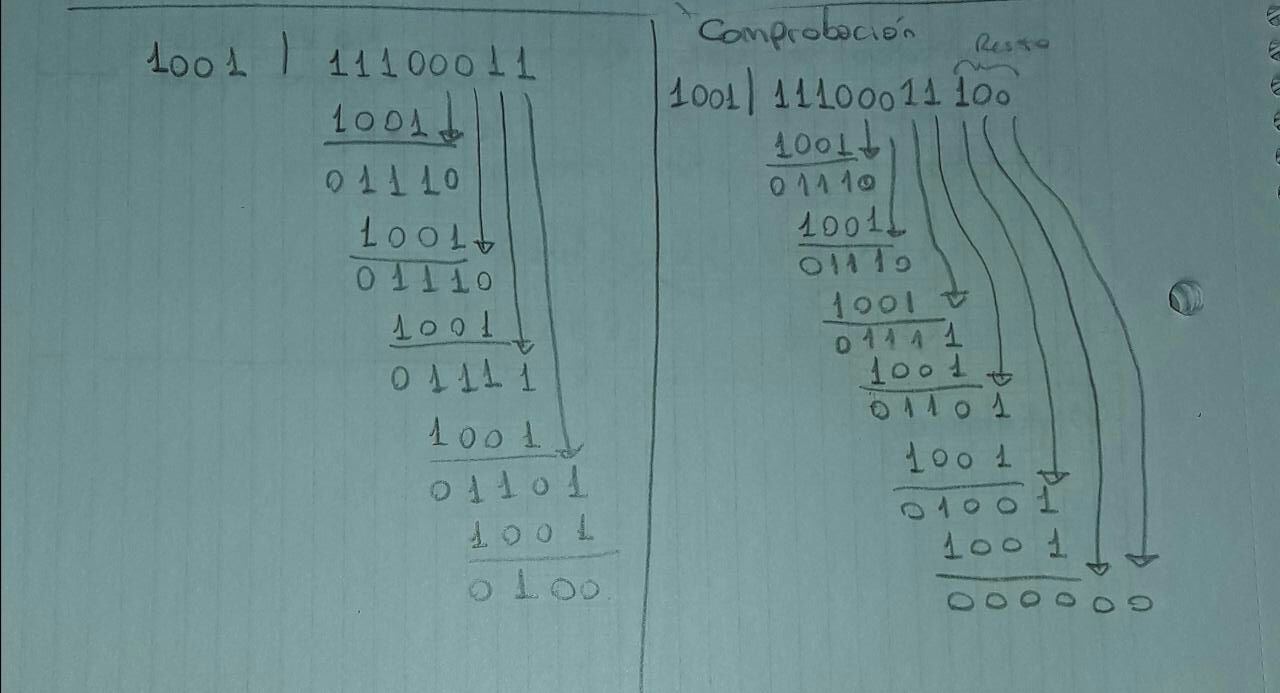 1001 | 11100011
1001
01110
1001
01110
1001
01111
1001
01101
1001
0100
Comprobación
Resto
1001 | 11100011 100
1001
01110
1001
01110
1001
01111
1001
01101
1001
01001
1001
000000